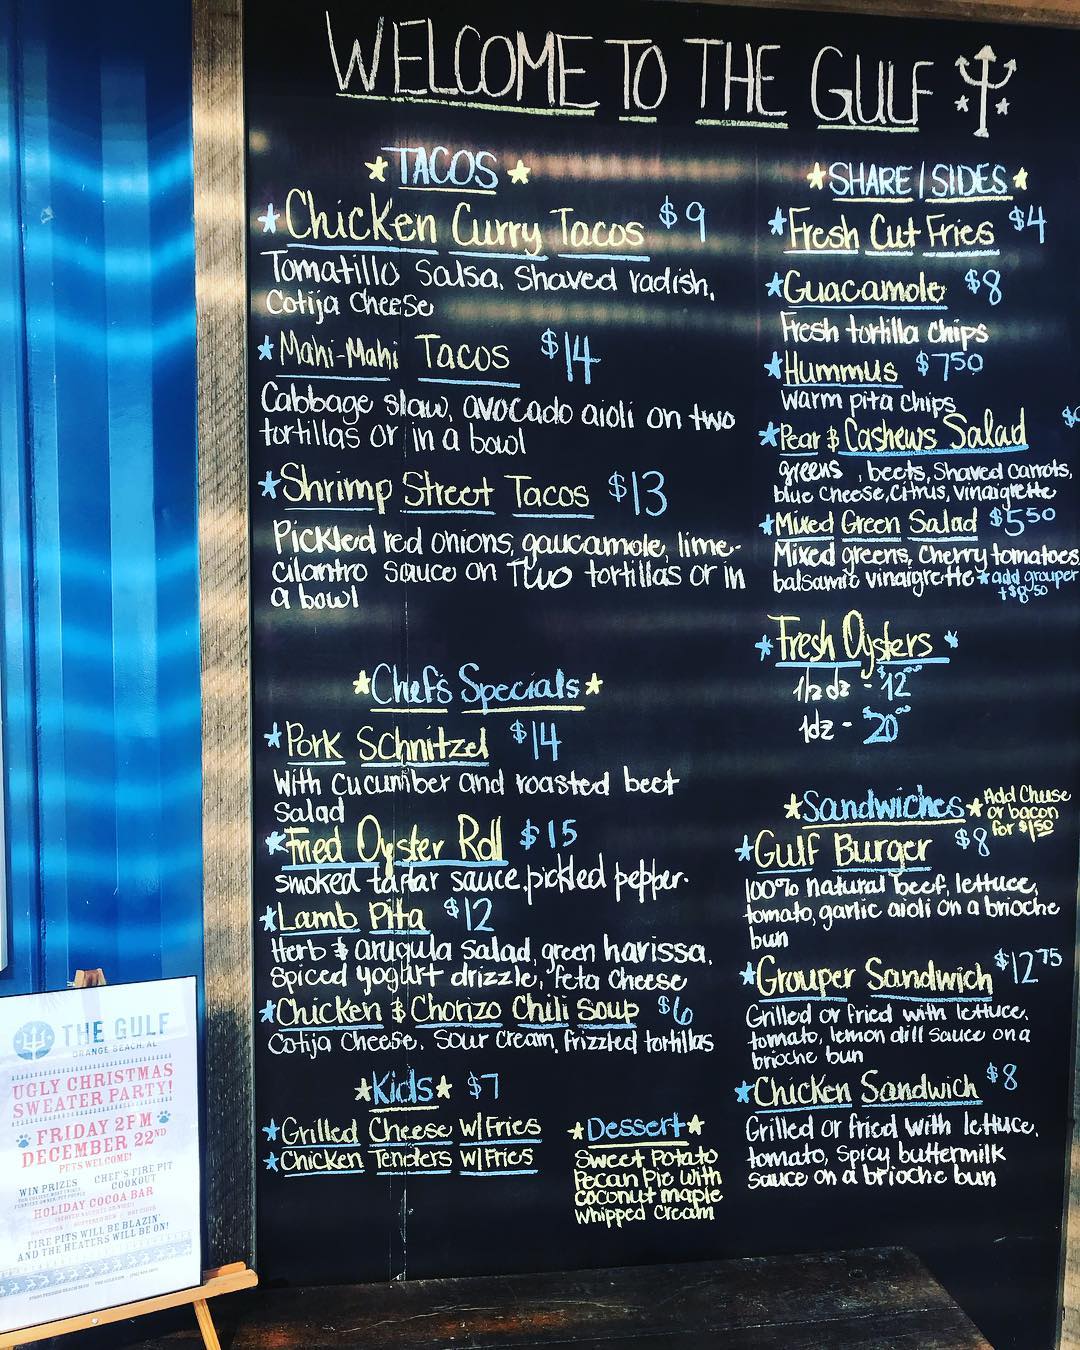 WELCOME TO THE GULF
TACOS
Chicken Curry Tacos $9
Tomatillo Salsa, Shaved radish,
Cotija Cheese
Mahi-Mahi Tacos $14
Cabbage slaw, avocado aioli on two
tortillas or in a bowl
Shrimp Street Tacos $13
Pickled red onions, gaucamole, lime-
cilantro sauce on Two tortillas or in
a bowl
Chef's Specials
Pork Schnitzel $14
With cucumber and roasted beet
Salad
Fried Oyster Roll $15
smoked tartar sauce, pickled pepper.
Lamb Pita $12
Herb & arugula Salad, green harissa,
Spiced yogurt drizzle, feta cheese
Chicken & Chorizo Chili Soup $6
Cotija Cheese, Sour Cream, frizzled tortillas
Kids $7
Grilled Cheese w/Fries
Chicken Tenders w/Fries
Dessert
Sweet Potato
Pecan Pie with
coconut maple
whipped cream
SHARE/SIDES
Fresh Cut Fries $4
Guacamole $8
Fresh tortilla chips
Hummus $7.50
Warm pita chips
Pear & Cashews Salad
greens, beets, Shaved carrots,
blue cheese, citrus, vinaigrette
Mixed Green Salad $5.50
Mixed greens, cherry tomatoes,
balsamic vinaigrette *add grouper
+$8.50
Fresh Oysters
1/2 dz - $12.00
1dz - 20.00
Sandwiches
Add Cheese
or bacon
for $1.50
Gulf Burger $8
100% natural beef, lettuce,
tomato, garlic aioli on a brioche
bun
Grouper Sandwich $12.75
Grilled or fried with lettuce,
tomato, lemon dill sauce on a
brioche bun
Chicken Sandwich $8
Grilled or fried with lettuce,
tomato, spicy buttermilk
sauce on a brioche bun
THE GULF
ORANGE BEACH, AL
UGLY CHRISTMAS
SWEATER PARTY!
FRIDAY 2PM
DECEMBER 22ND
PETS WELCOME!
WIN PRIZES
CHEF'S FIRE PIT
COOKOUT
HOLIDAY COCOA BAR
FIRE PITS WILL BE BLAZIN'
AND THE HEATERS WILL BE ON!